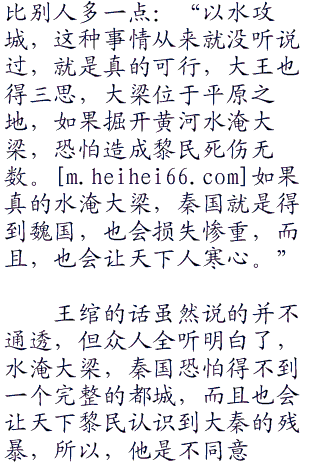 比别人多一点：“以水攻
城，这种事情从来就没听说
过，就是真的可行，大王也
得三思，大梁位于平原之
地，如果掘开黄河水淹大
梁，恐怕造成黎民死伤无
数。[m.heihei66.com]如果
真的水淹大梁，秦国就是得
到魏国，也会损失惨重，而
且，也会让天下人寒心。”
王绾的话虽然说的并不
通透，但众人全听明白了，
水淹大梁，秦国恐怕得不到
一个完整的都城，而且也会
让天下黎民认识到大秦的残
暴，所以，他是不同意